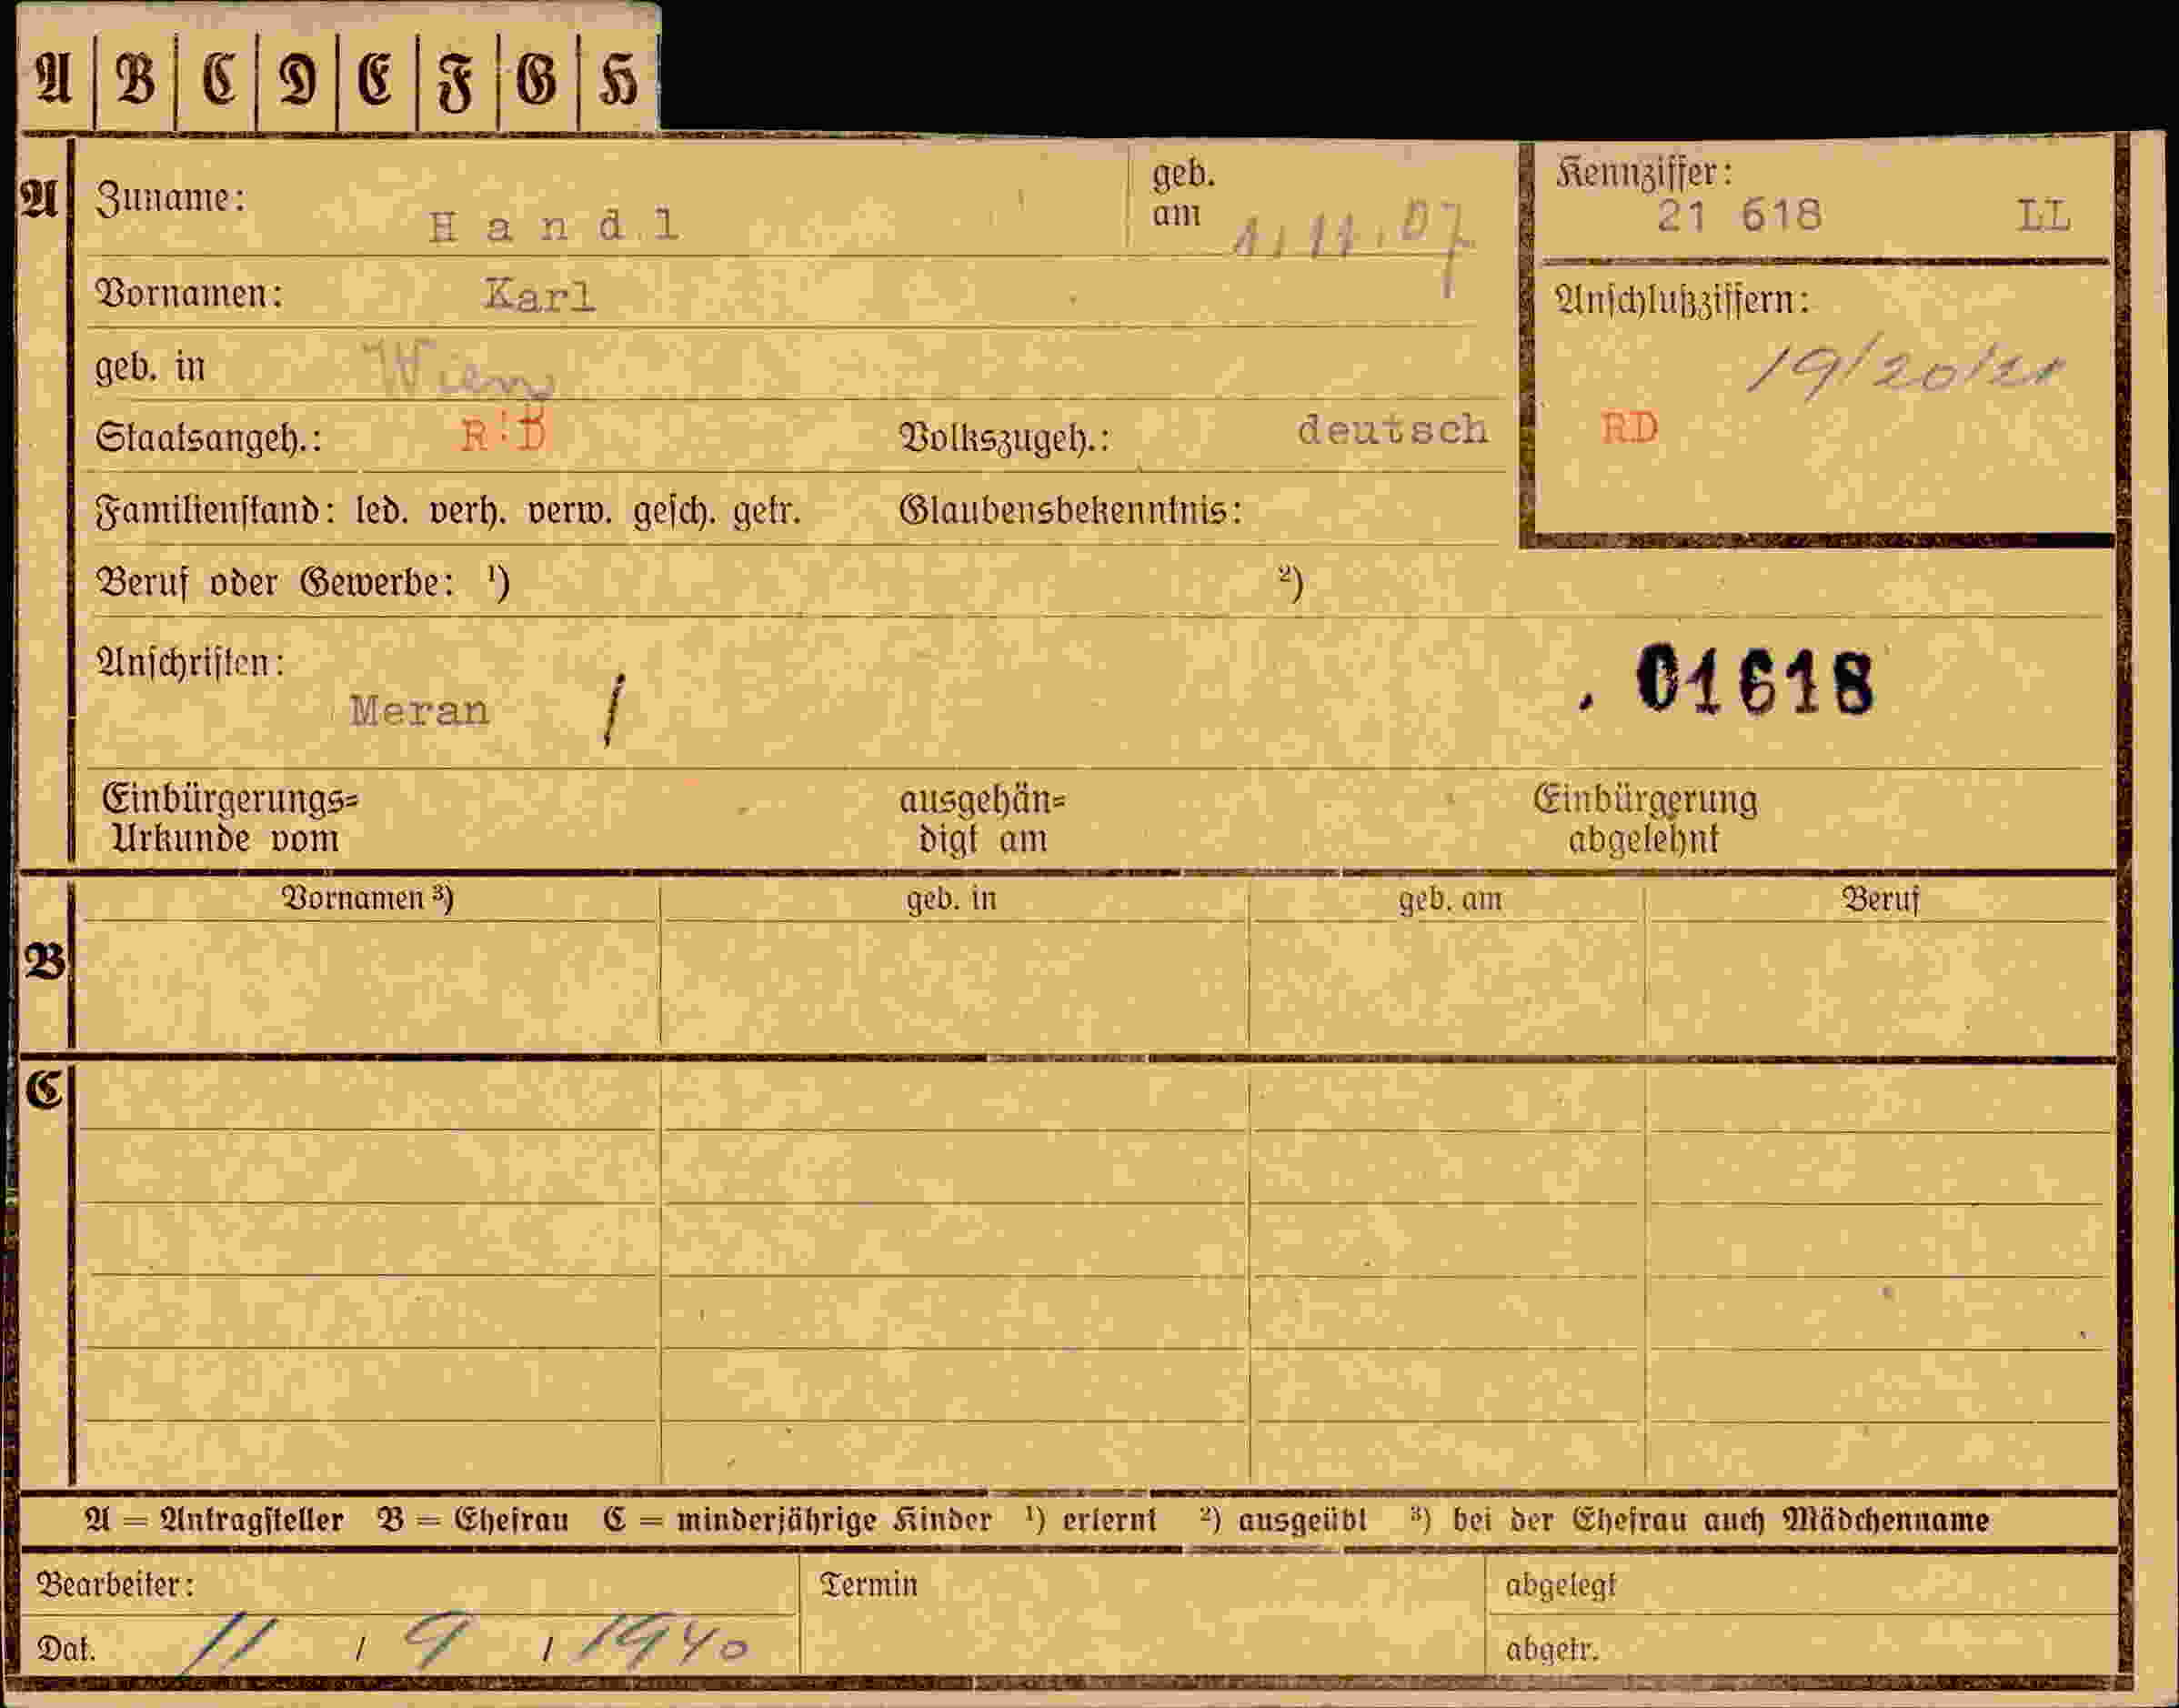 A B C D E F G H
A Zuname: Handl geb. am 1.11.07 Kennziffer: 21 618 LL
Vornamen: Karl Anschlußziffern:
geb. in Wien 19/20/21
Staatsangeh.: R:D Volkszugeh.: deutsch RD
Familienstand: led. verh. verw. gesch. getr. Glaubensbekenntnis:
Beruf oder Gewerbe: ¹) ²)
Anschriften: . 01618
Meran /
Einbürgerungs= ausgehän= Einbürgerung
Urkunde vom digt am abgelehnt
Vornamen ³) geb. in geb. am Beruf
B
C
A = Antragsteller B = Ehefrau C = minderjährige Kinder ¹) erlernt ²) ausgeübt ³) bei der Ehefrau auch Mädchenname
Bearbeiter: Termin abgelegt
Dat. 11 / 9 / 1940 abgetr.